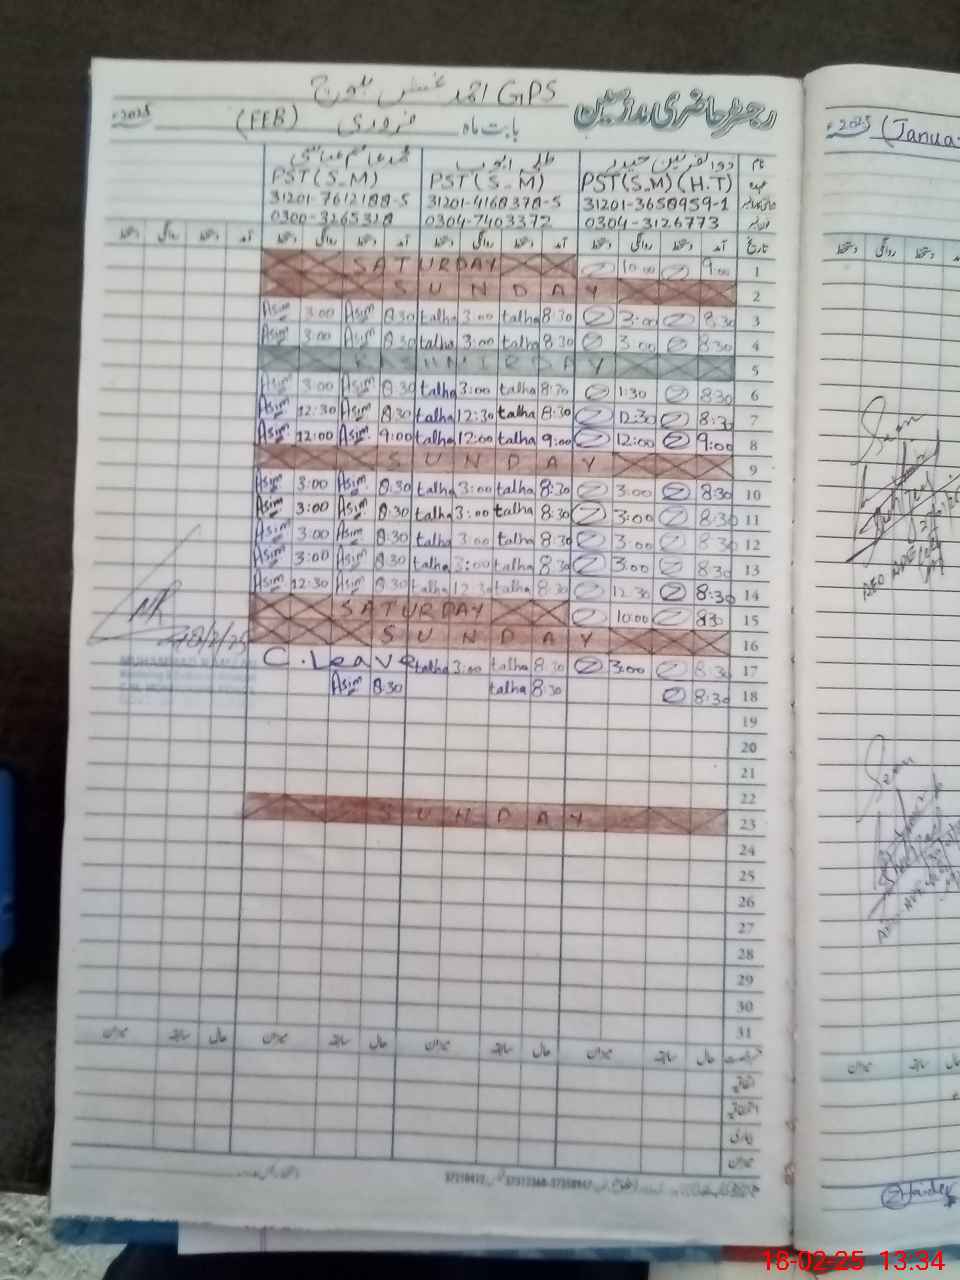 GPS احمد بلوچ
رجسٹر حاضری ملازمین
بابت ماہ فروری (FEB) 2025
نام ذوالقرنین حیدر طلحہ ایوب محمد عاصم عباسی
عہدہ PST(S.M)(H.T) PST(S.M) PST(S.M)
31201-3650959-1 31201-4160370-5 31201-7612180-5
0304-3126773 0304-7403372 0300-3265320
تاریخ آمد دستخط روانگی دستخط آمد دستخط روانگی دستخط آمد دستخط روانگی دستخط آمد دستخط روانگی دستخط
1 9:00 10:00 SATURDAY
2 SUNDAY
3 8:30 3:00 8:30 talha 3:00 talha 8:30 Asim 3:00 Asim
4 8:30 3:00 8:30 talha 3:00 talha 8:30 Asim 3:00 Asim
5 KASHMIR DAY
6 8:30 1:30 8:30 talha 3:00 talha 8:30 Asim 3:00 Asim
7 8:30 12:30 8:30 talha 12:30 talha 8:30 Asim 12:30 Asim
8 9:00 12:00 9:00 talha 12:00 talha 9:00 Asim 12:00 Asim
9 SUNDAY
10 8:30 3:00 8:30 talha 3:00 talha 8:30 Asim 3:00 Asim
11 8:30 3:00 8:30 talha 3:00 talha 8:30 Asim 3:00 Asim
12 8:30 3:00 8:30 talha 3:00 talha 8:30 Asim 3:00 Asim
13 8:30 3:00 8:30 talha 3:00 talha 8:30 Asim 3:00 Asim
14 8:30 12:30 8:30 talha 12:30 talha 8:30 Asim 12:30 Asim
15 8:30 10:00 SATURDAY
16 SUNDAY
17 8:30 3:00 8:30 talha 3:00 talha C.Leave
18 8:30 8:30 talha 8:30 Asim
19
20
21
22
23 SUNDAY
24
25
26
27
28
29
30
31
حال سابقہ میزان حال سابقہ میزان حال سابقہ میزان حال سابقہ میزان
اتفاقیہ
بیماری
میزان
18/2/25
2025 (Janua
Haider
18-02-25 13.34